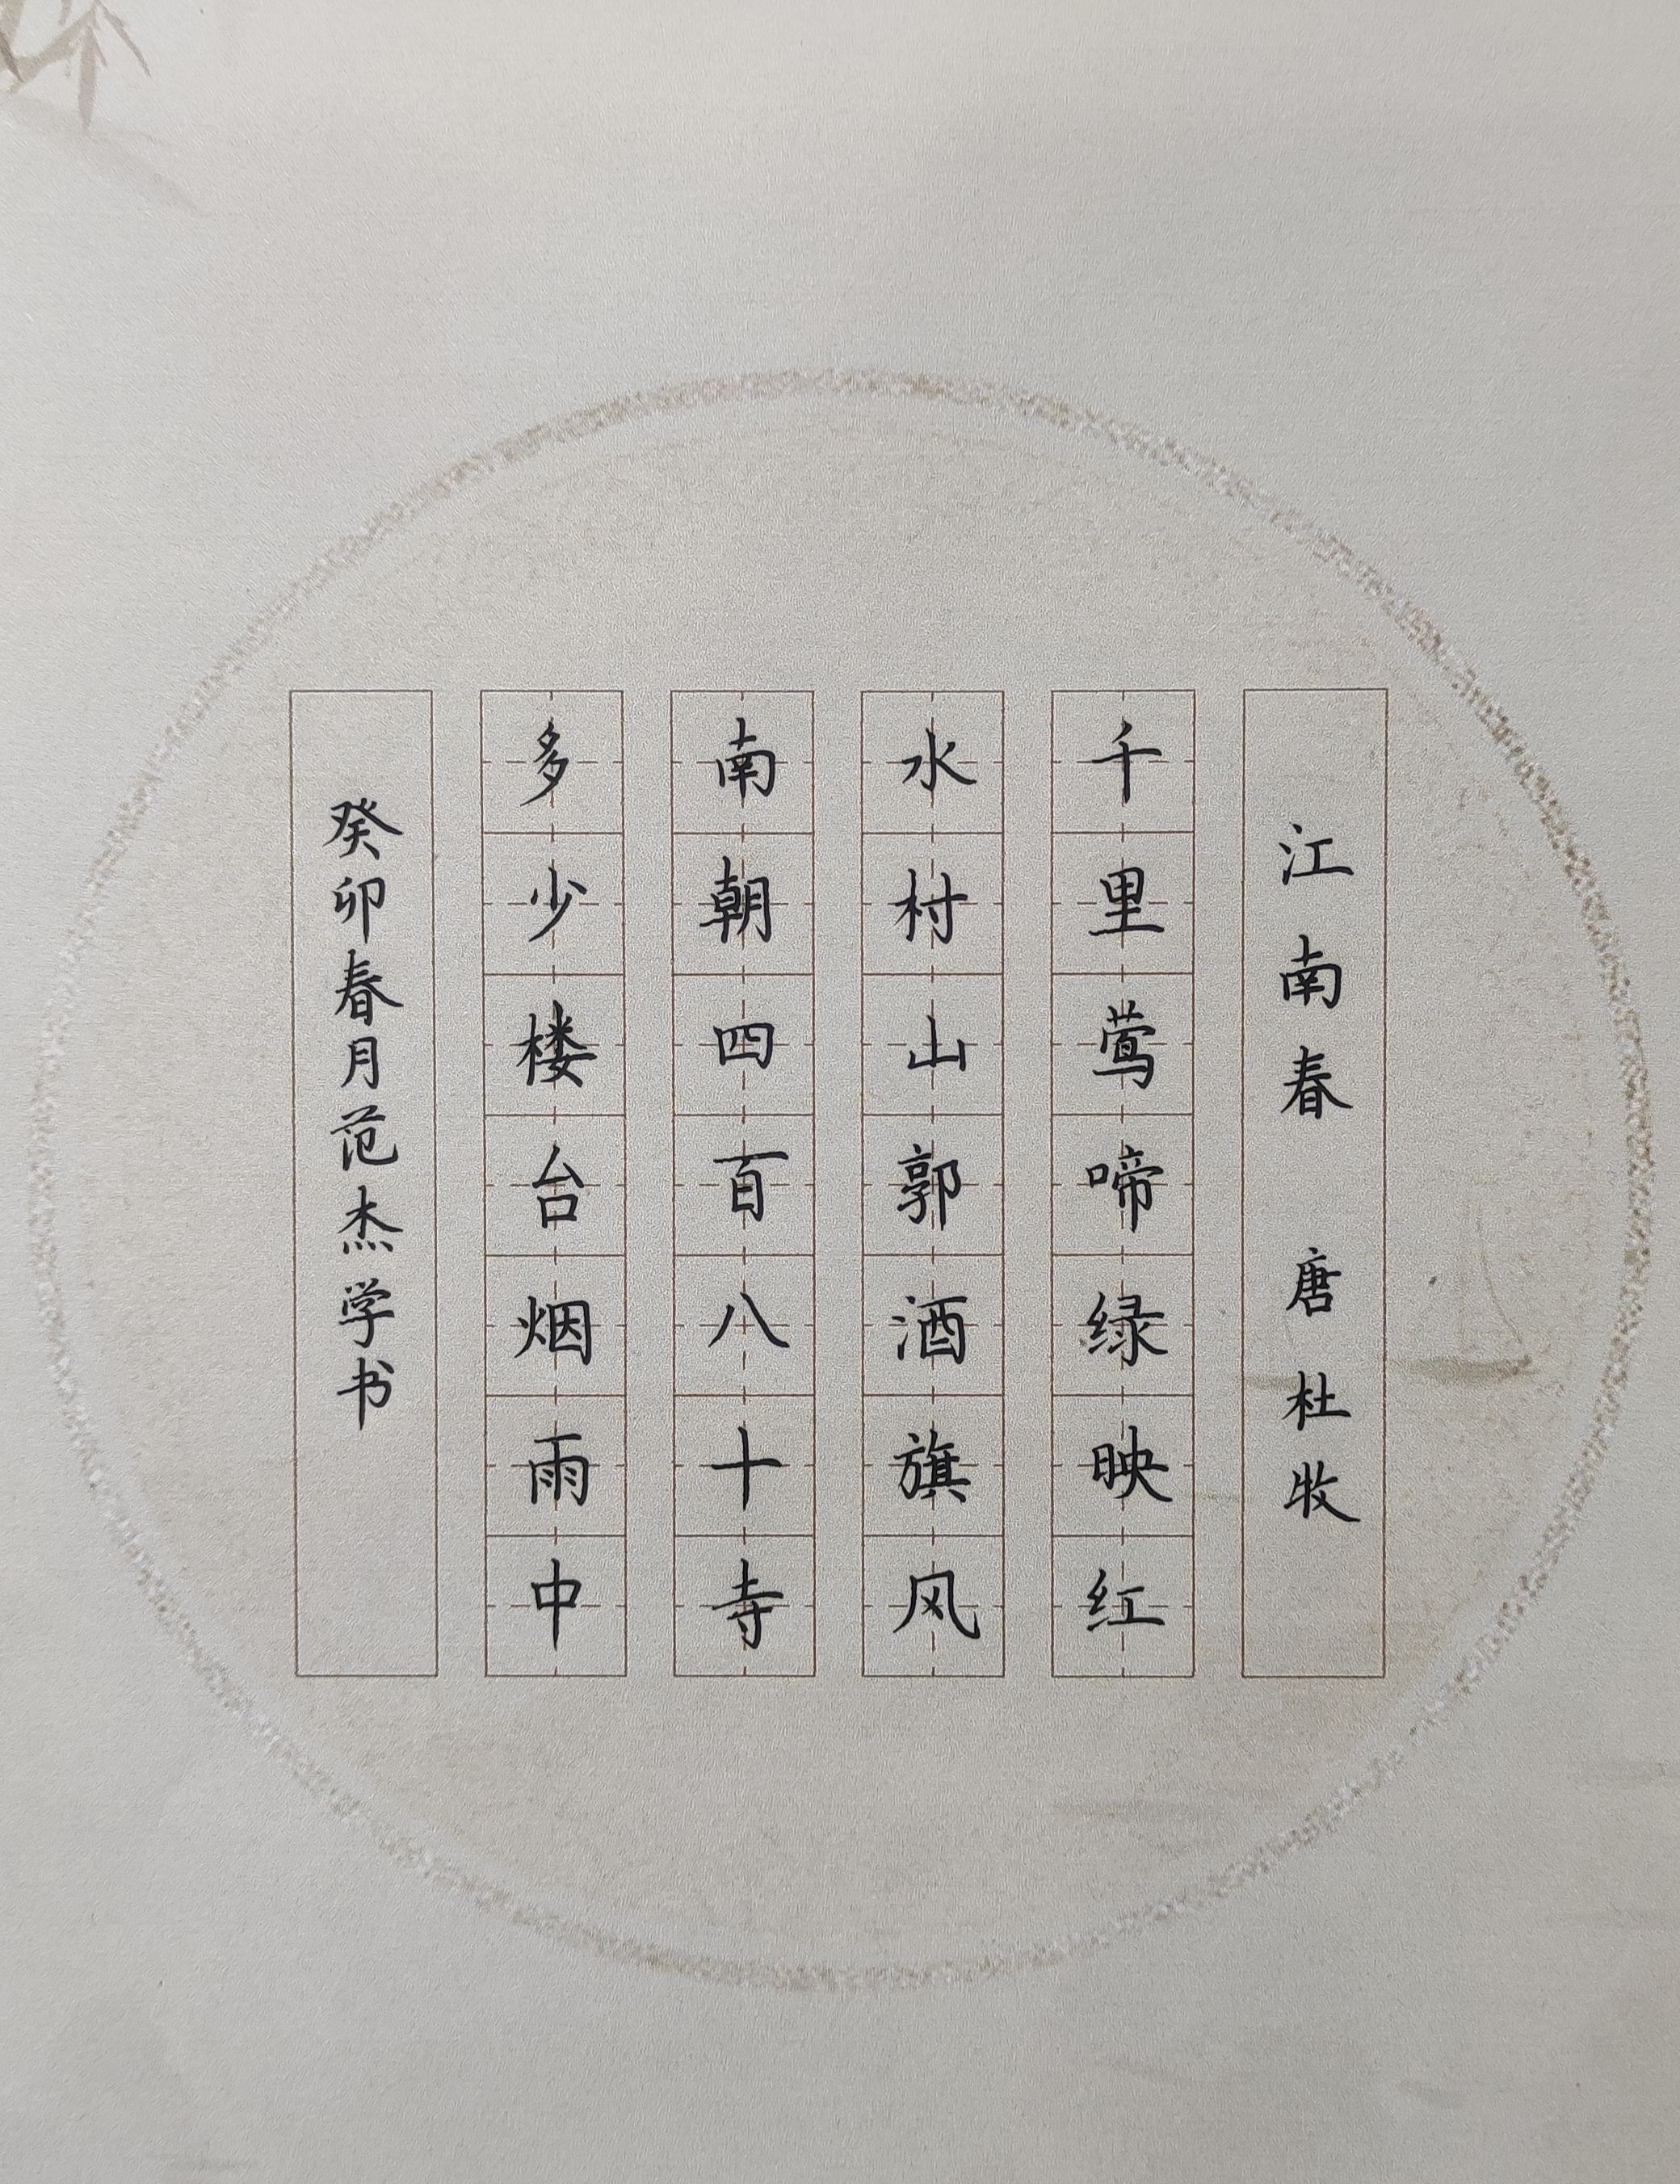 江南春 唐 杜牧
千里莺啼绿映红
水村山郭酒旗风
南朝四百八十寺
多少楼台烟雨中
癸卯春月范杰学书